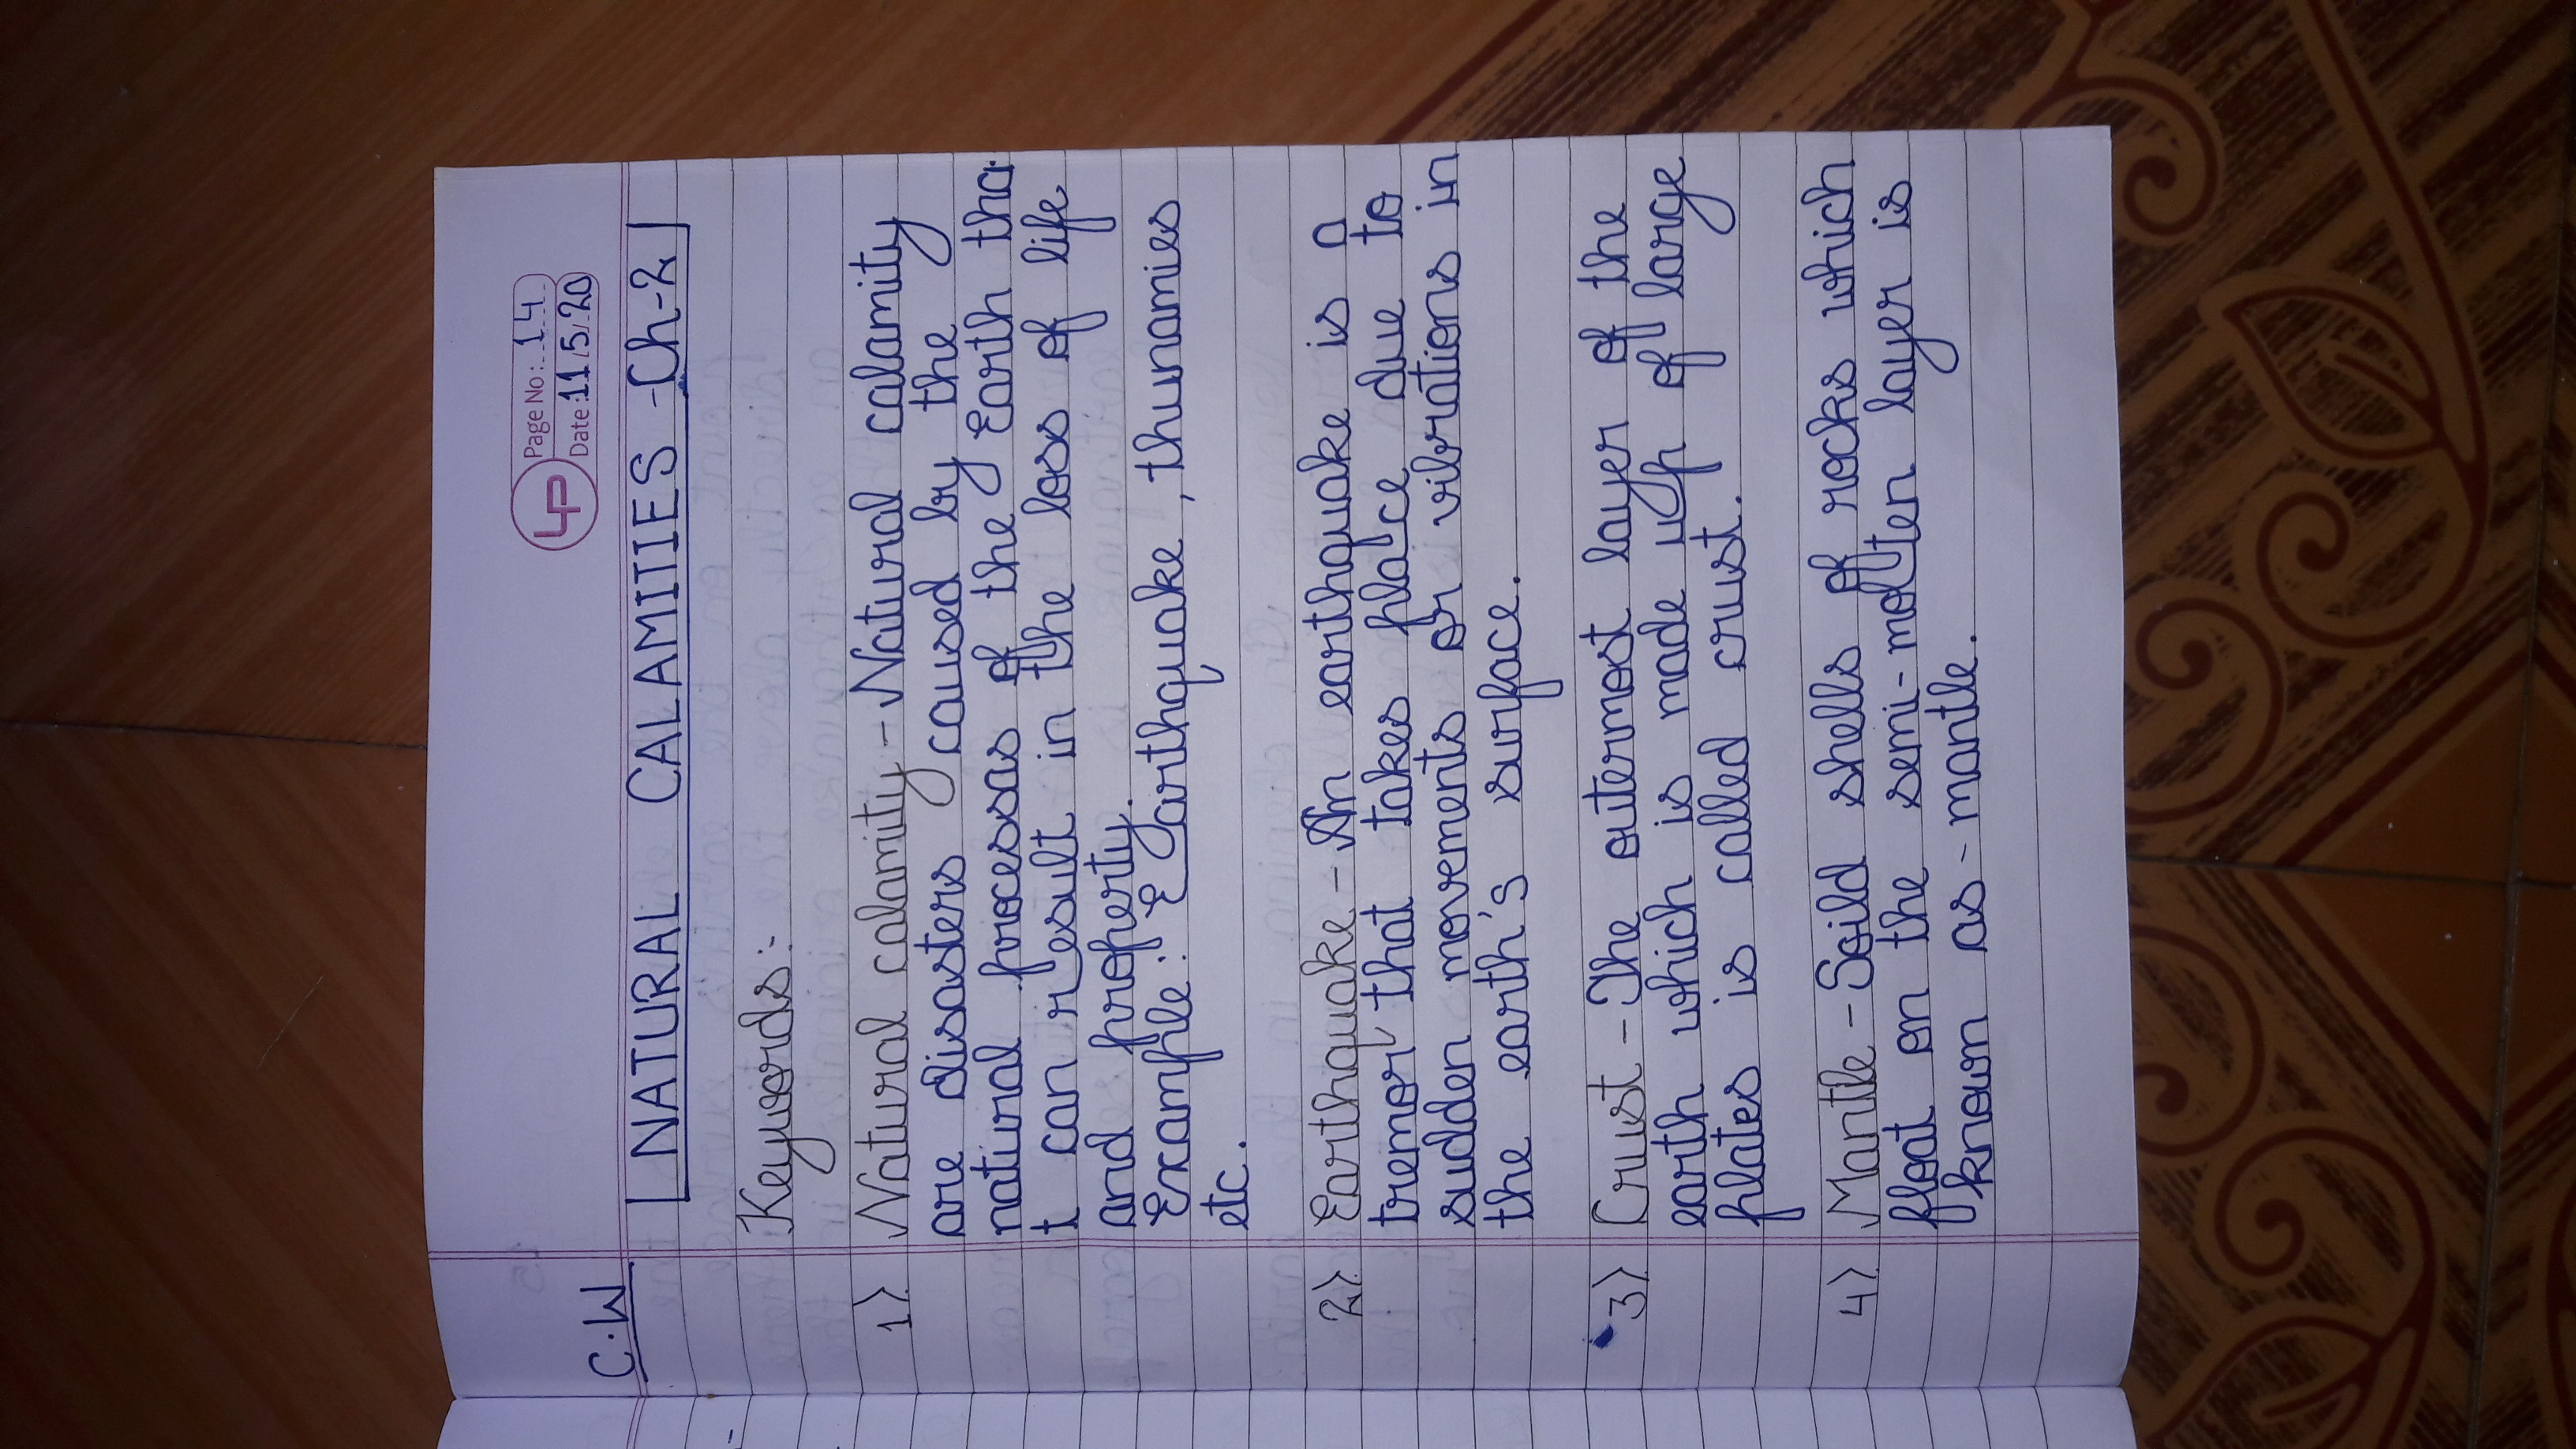 LP
Page No: 14
Date: 11/5/20
C.W
NATURAL CALAMITIES - Ch-2
Keywords:-
1) Natural calamity - Natural calamity
are disasters caused by the
natural processas of the Earth tha
t can result in the loss of life
and property.
Example: Earthquake, thunamies
etc.
2) Earthquake - An earthquake is a
tremor that takes place due to
sudden movements or vibrations in
the earth's surface.
3) Crust - The outermost layer of the
earth which is made up of large
plates is called crust.
4) Mantle - Soild shells of rocks which
float on the semi-molten layer is
known as - mantle.